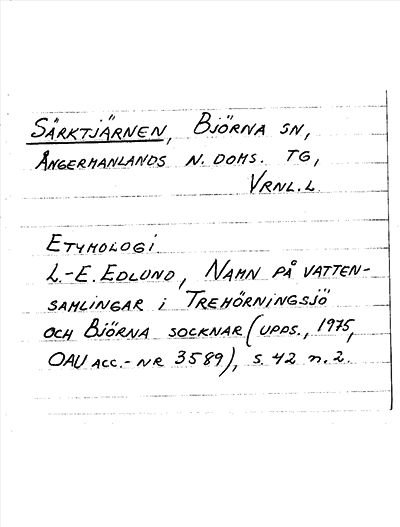 SÄRKTJÄRNEN, BJÖRNA SN,
ÅNGERMANLANDS N. DOMS. TG,
VRNL.L.
ETYMOLOGI
L.-E. EDLUND, NAMN PÅ VATTEN-
SAMLINGAR I TREHÖRNINGSJÖ
OCH BJÖRNA SOCKNAR (UPPS., 1975,
OAU ACC.-NR 3589), S. 42 n. 2.